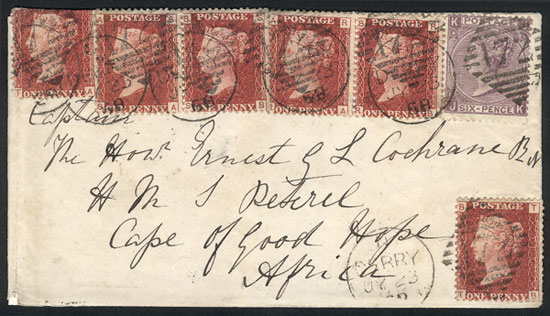 POSTAGE
ONE PENNY
POSTAGE
ONE PENNY
POSTAGE
ONE PENNY
POSTAGE
ONE PENNY
POSTAGE
ONE PENNY
POSTAGE
SIX-PENCE
Captain
The Honl. Ernest G L Cochrane R N
H M S Peterel
Cape of Good Hope
Africa
DERRY
JY 23
POSTAGE
ONE PENNY